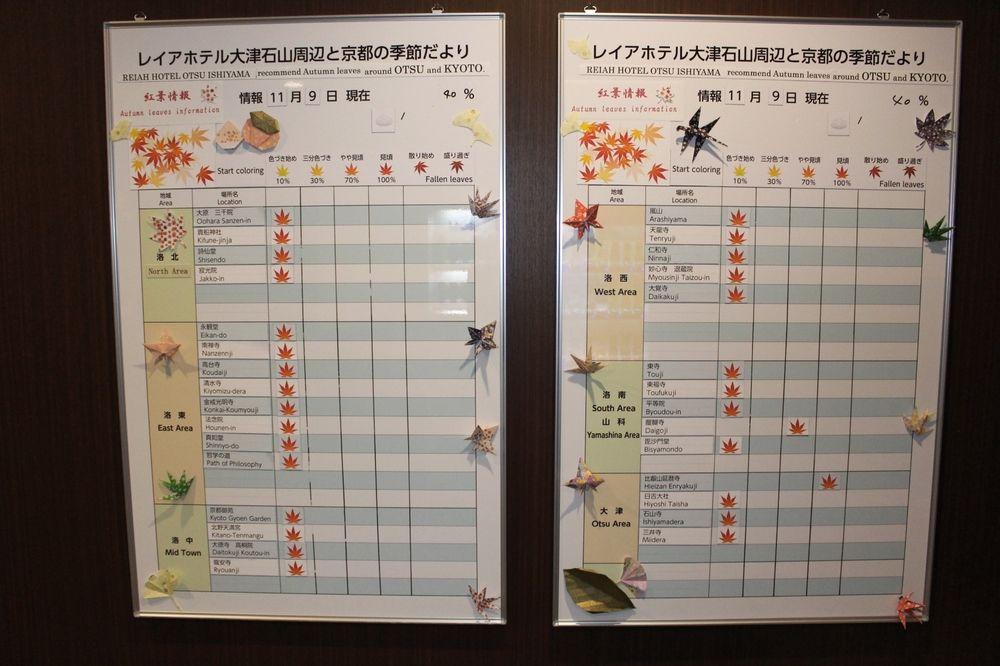 レイアホテル大津石山周辺と京都の季節だより
REIAH HOTEL OTSU ISHIYAMA recommend Autumn leaves around OTSU and KYOTO.
紅葉情報
Autumn leaves information
情報 11 月 9 日 現在
40 %
/
Start coloring
色づき始め 三分色づき やや見頃 見頃 散り始め 盛り過ぎ
10% 30% 70% 100% Fallen leaves
地域 場所名
Area Location
洛 北
North Area
大原 三千院
Oohara Sanzen-in
貴船神社
Kifune-jinja
詩仙堂
Shisendo
寂光院
Jakko-in
洛 東
East Area
永観堂
Eikan-do
南禅寺
Nanzennji
高台寺
Koudaiji
清水寺
Kiyomizu-dera
金戒光明寺
Konkai-Koumyouji
法念院
Hounen-in
真如堂
Shinnyo-do
哲学の道
Path of Philosophy
洛 中
Mid Town
京都御苑
Kyoto Gyoen Garden
北野天満宮
Kitano-Tenmangu
大原寺 高桐院
Daitokuji Koutou-in
龍安寺
Ryouanji
レイアホテル大津石山周辺と京都の季節だより
REIAH HOTEL OTSU ISHIYAMA recommend Autumn leaves around OTSU and KYOTO.
紅葉情報
Autumn leaves information
情報 11 月 9 日 現在
40 %
/
Start coloring
色づき始め 三分色づき やや見頃 見頃 散り始め 盛り過ぎ
10% 30% 70% 100% Fallen leaves
地域 場所名
Area Location
洛 西
West Area
嵐山
Arashiyama
天龍寺
Tenryuji
仁和寺
Ninnaji
妙心寺 退蔵院
Myousinji Taizou-in
大覚寺
Daikakuji
洛 南
South Area
山 科
Yamashina Area
東寺
Touji
東福寺
Toufukuji
平等院
Byoudou-in
醍醐寺
Daigoji
毘沙門堂
Bisyamondo
大 津
Otsu Area
比叡山延暦寺
Hieizan Enryakuji
日吉大社
Hiyoshi Taisha
石山寺
Ishiyamadera
三井寺
Miidera